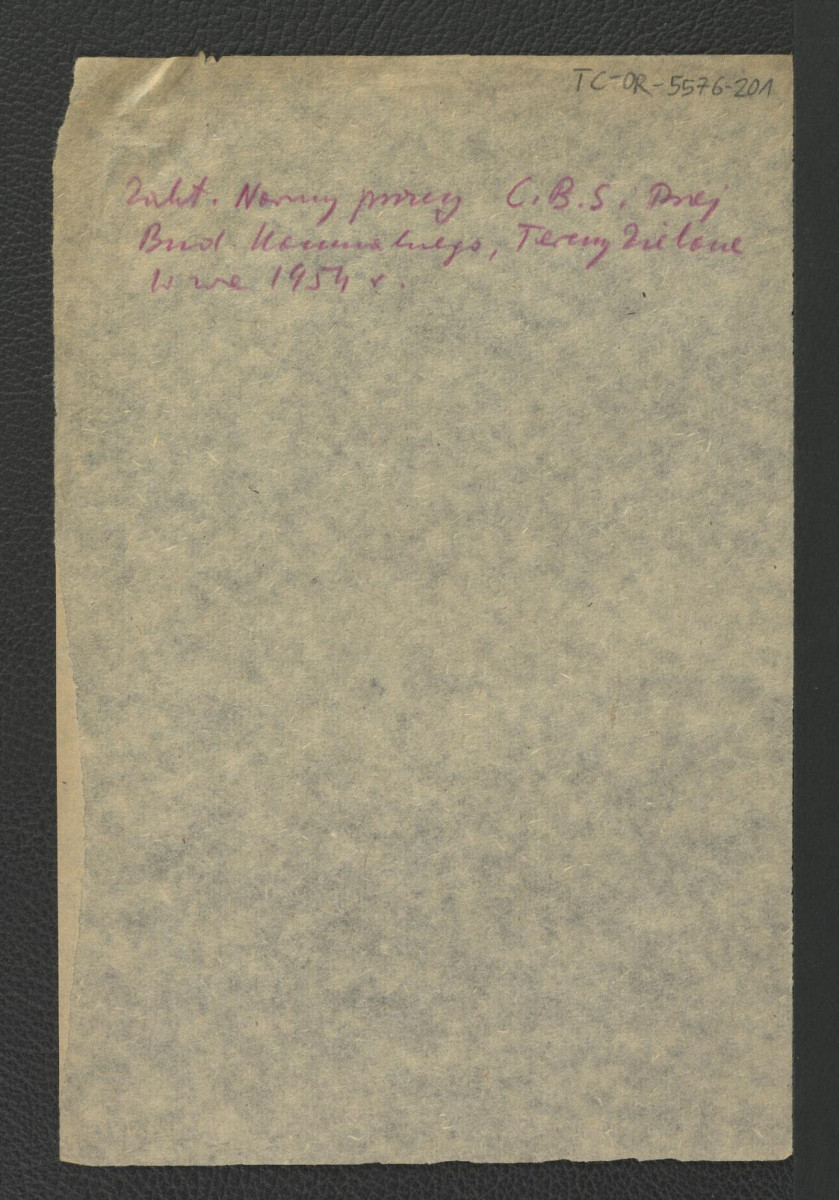 TC-OR-5576-201
Zakt. Normy pracy C.B.S. i Proj
Bud Komunalnego, Tereny Zielone
W-wa 1954 r.